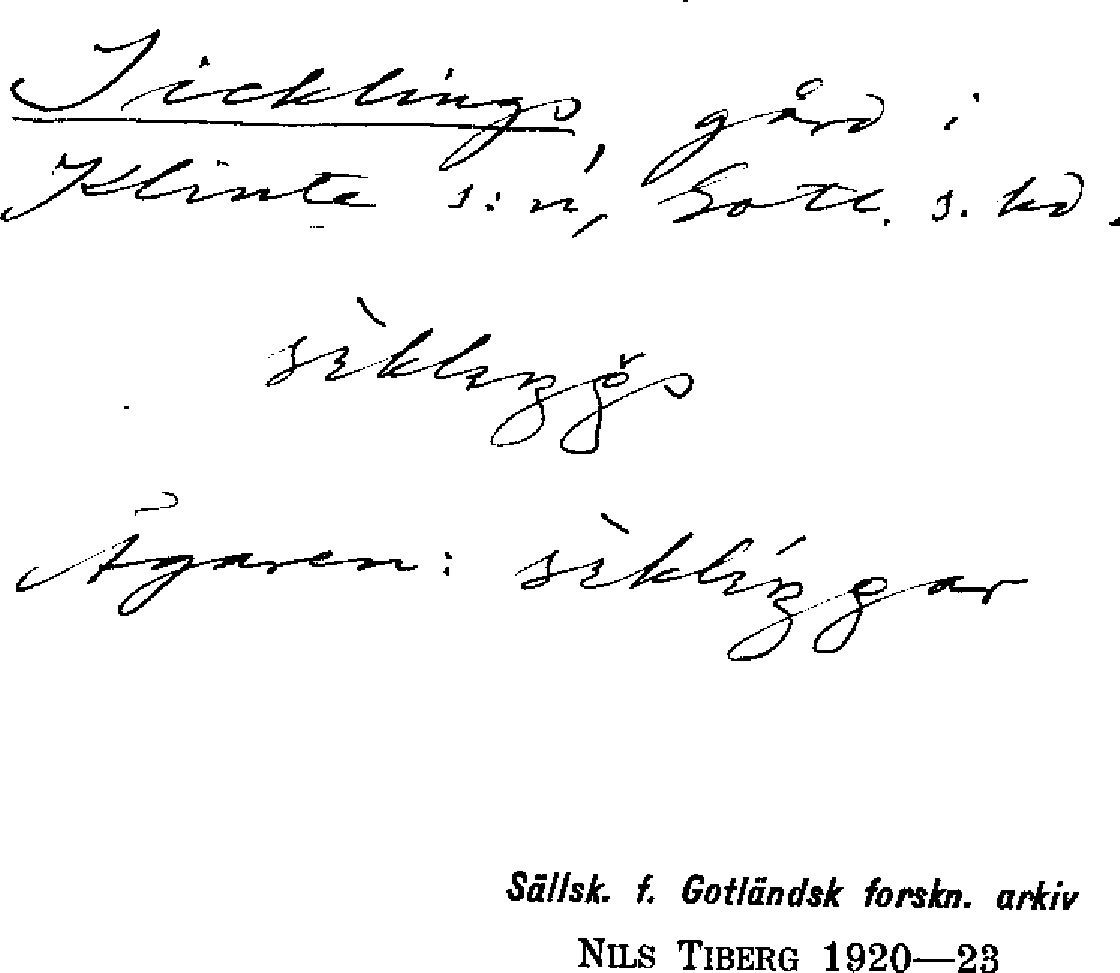 Sicklings, gård i
Klinte s:n, Gotl. s. hd.
Ägaren:
Sällsk. f. Gotländsk forskn. arkiv
NILS TIBERG 1920—23